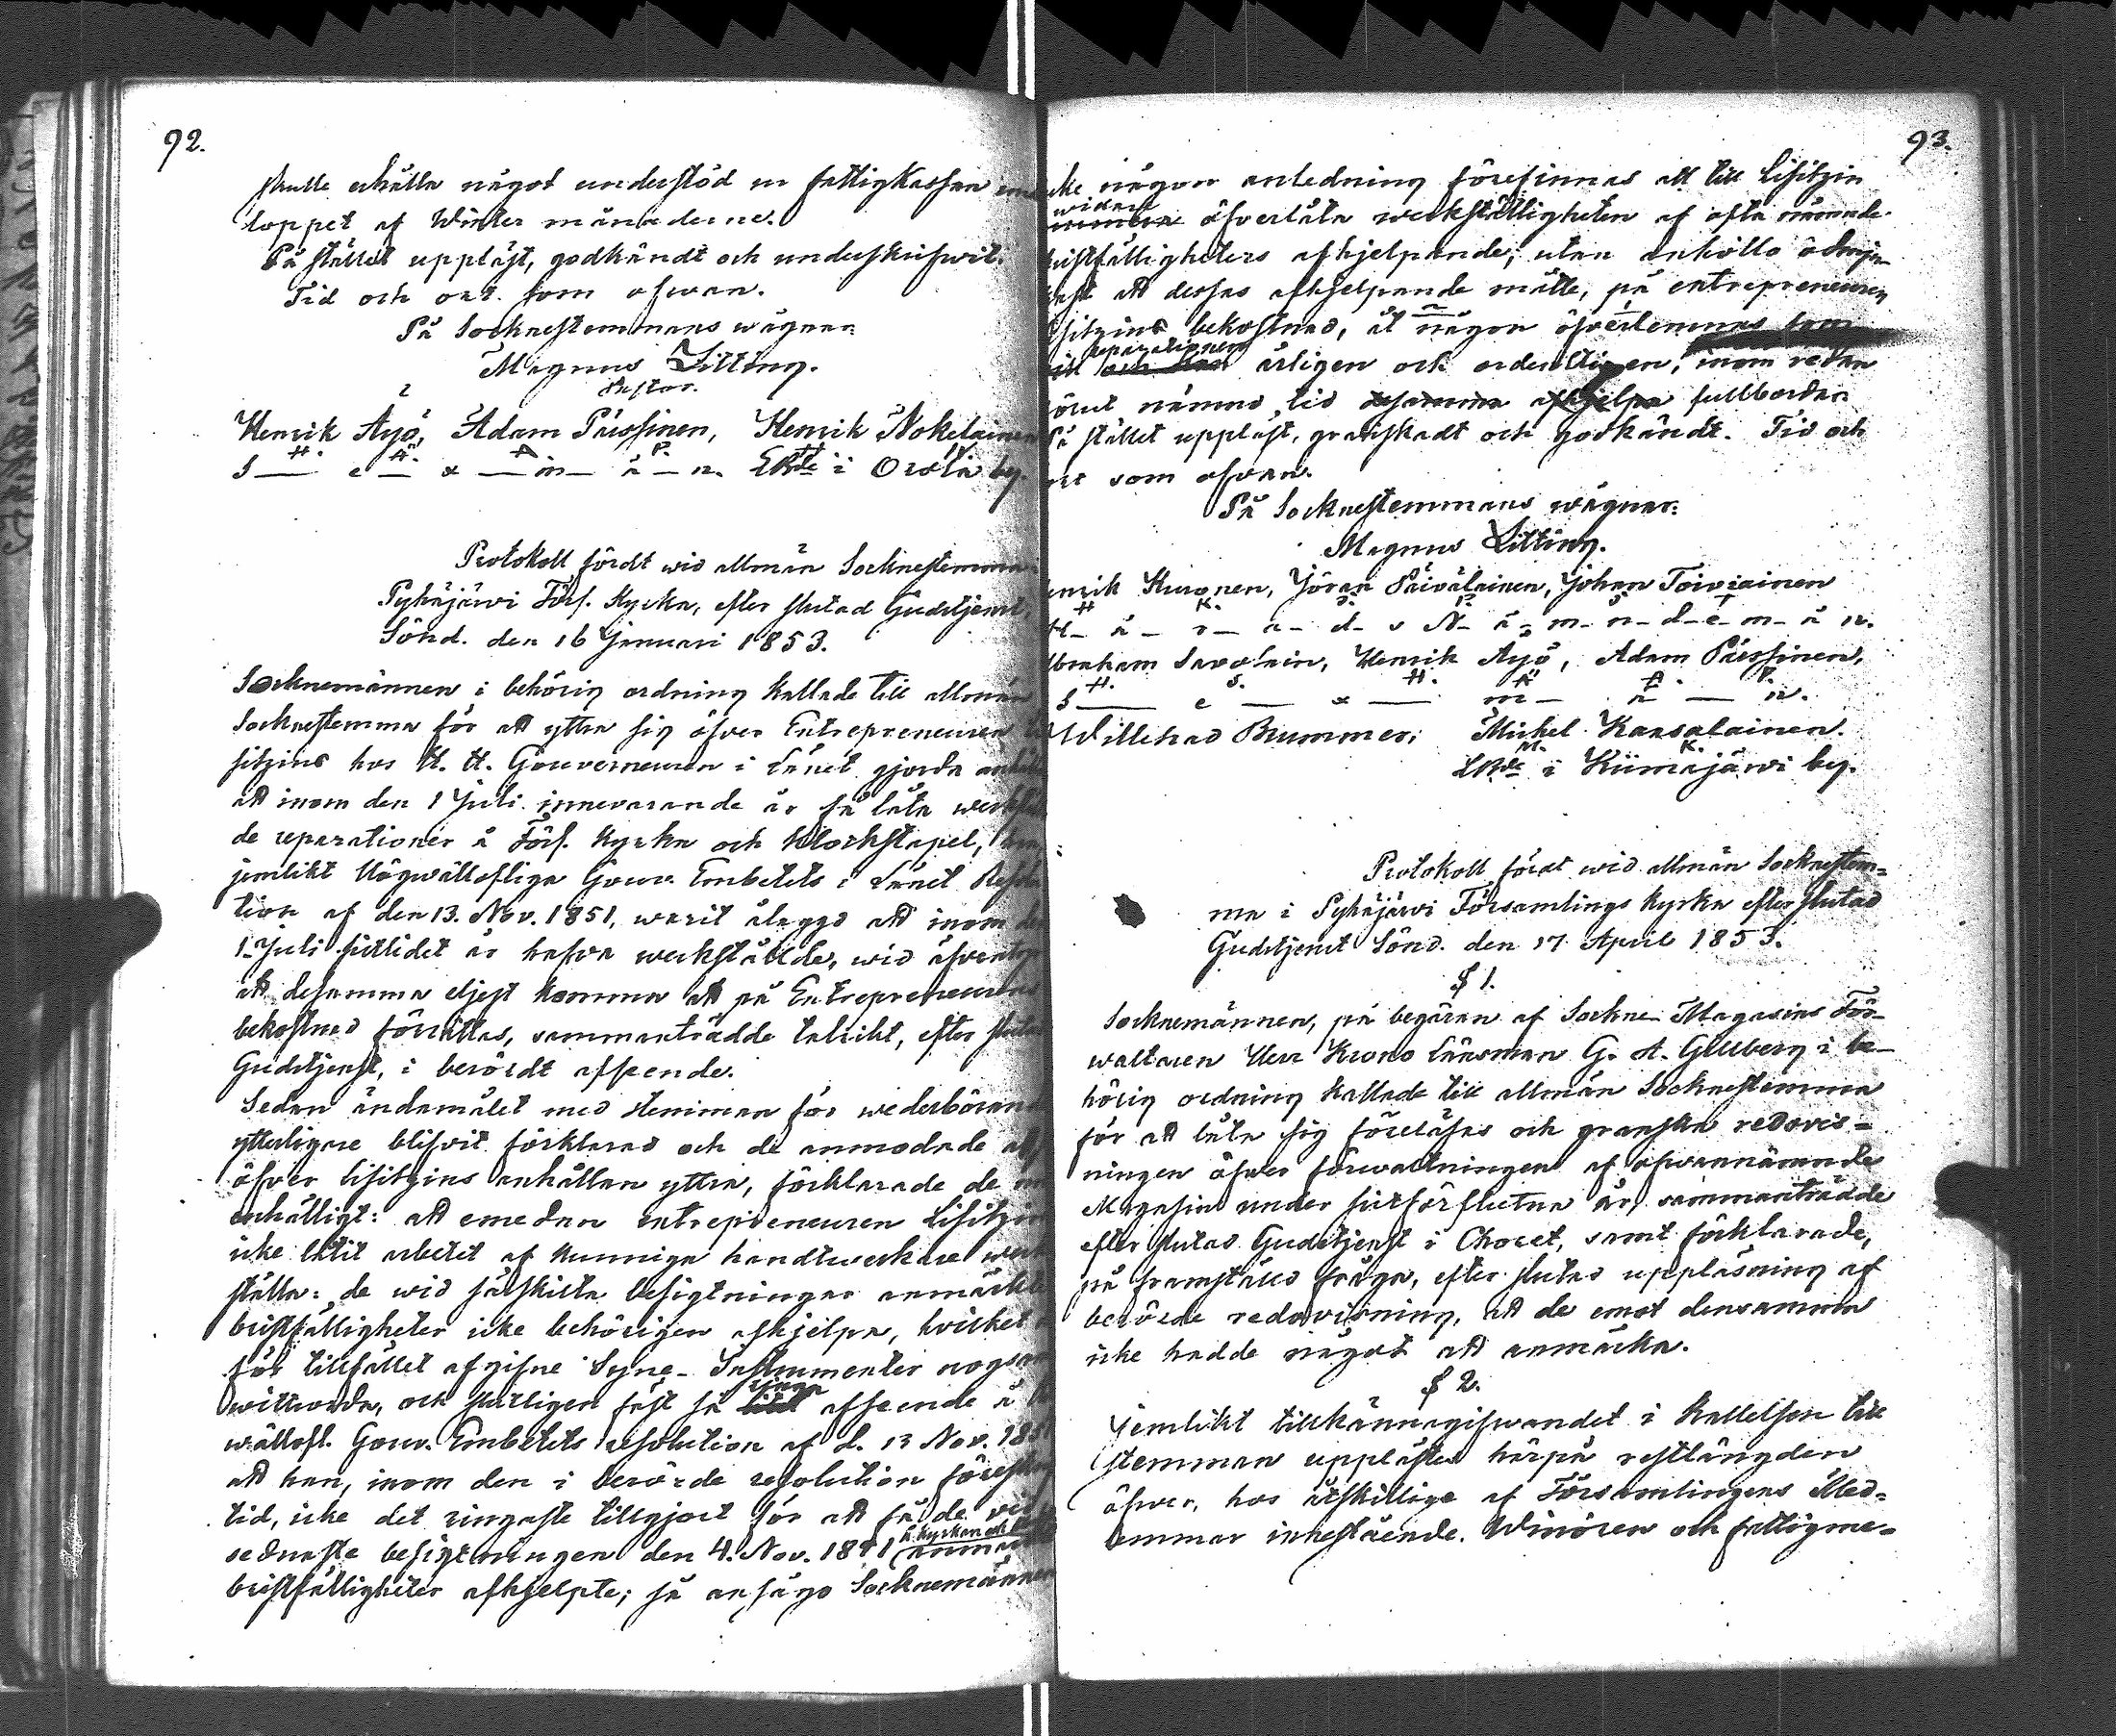 92.
skulle erhålla något understöd ur fattigkassan
loppet af Winter månaderne.
På stället uppläst, godkändt och underskrifwit.
Tid och ort som ofwan.
På Socknestemmans wägnar:
Magnus Zitting.
Pastor.
Henrik Äyö, Adam Pärssinen, Henrik Nokelainen
H. Ä. A. P. H. N.
S — e — x — m — ä — n. EBde i Orola by.
Protokoll fördt wid allmän Socknestemma i
Pyhäjärwi Förs. Kyrka, efter slutad Gudstjenst,
Sönd. den 16 Januari 1853.
Socknemännen i behörig ordning kallade till allmän
Socknestemma för att yttra sig öfver Entrepreneuren Li
sitzins hos H. H. Gouverneuren i Länet gjorda
att inom den 1 Juli innevarande år få låta werkstäl
de reparationer å Förs. Kyrka och Klockstapel,
jemlikt Högwällofliga Gouv. Embetets i Länet Resolu
tion af den 13. Nov. 1851, warit ålagd att inom
1. Juli sistlidet år hafva werkstälde, wid äfventyr
att desamma eljest komma att på Entrepreneurens
bekostnad förrättas, sammanträdde talrikt, efter slutad
Gudstjenst, i berördt afseende.
Sedan ändamålet med stemman för wederbörande
ytterligare blifvit förklarad och de anmodade att
öfver Lisitzins anhållan yttra, förklarade de
enhälligt: att emedan entrepreneuren Lisitzin
icke låtit arbetet af kunniga handtwerkare werk
ställa: de wid särskilta besigtningar anmärkte
bristfälligheter icke behörigen afhjelpa, hvilket
för tillfället afgifne Syne-Instrumenter nogsamt
witsorda, och slutligen fäst så ringa afseende å
wällofl. Gouv. Embetets resolution af d. 13 Nov. 1851
att han, inom den i berörde resolution föreskrifne
tid, icke det ringaste tillgjort för att få de vid
sednaste besigtningen den 4. Nov. 1841 å kyrkan och
bristfälligheter afhjelpte; så ansågo Socknemännen
93.
icke någon anledning förefinnas att till Lisitzin
widare öfverlåta werkställigheten af ofta nämnde
bristfälligheters afhjelpande; utan anhöllo ödmju-
kast att dessas afhjelpande måtte, på entrepreneuren
Lisitzins bekostnad, åt någon öfverlemnas som
reparationen ärligen och ordentligen, inom redan
förut nämnd tid fullbordar.
På stället uppläst, granskadt och godkändt. Tid och
ort som ofvan.
På Socknestemmans wägnar:
Magnus Zitting.
Henrik Kuronen, Jöran Päivälainen, Johan Toiviainen
H. K. J. P. J. T.
H- ä- r- a- d- s N- ä- m- n- d- e- m- ä n.
Abraham Savolain, Henrik Äyö, Adam Pärssinen,
A. S. H. Ä. A. P.
S — e — x — m — ä — n.
Willehad Brummer, Mickel Kansalainen.
M. K.
EBde i Kiimajärwi by.
Protokoll fördt wid allmän Socknestem-
ma i Pyhäjärwi Församlings Kyrka efter slutad
Gudstjenst Sönd. den 17 April 1853.
§ 1.
Socknemännen, på begäran af Sockne-Magasins För-
waltaren Herr Krono Länsman G. A. Gillberg i be-
hörig ordning kallade till allmän Socknestemma
för att låta sig föreläsas och granska redovis-
ningen öfver förwaltningen af ofwannämnde
Magasin under sistförflutna år, sammanträdde
efter slutad Gudstjenst i Choret, samt förklarade,
på framstäld fråga, efter slutad uppläsning af
berörde redovisning, att de emot densamma
icke hadde något att anmärka.
§ 2.
Jemlikt tillkännagifwandet i kallelsen till
stemman upplästes härpå restlängden
öfwer, hos åtskillige af Församlingens Med-
lemmar innestående.